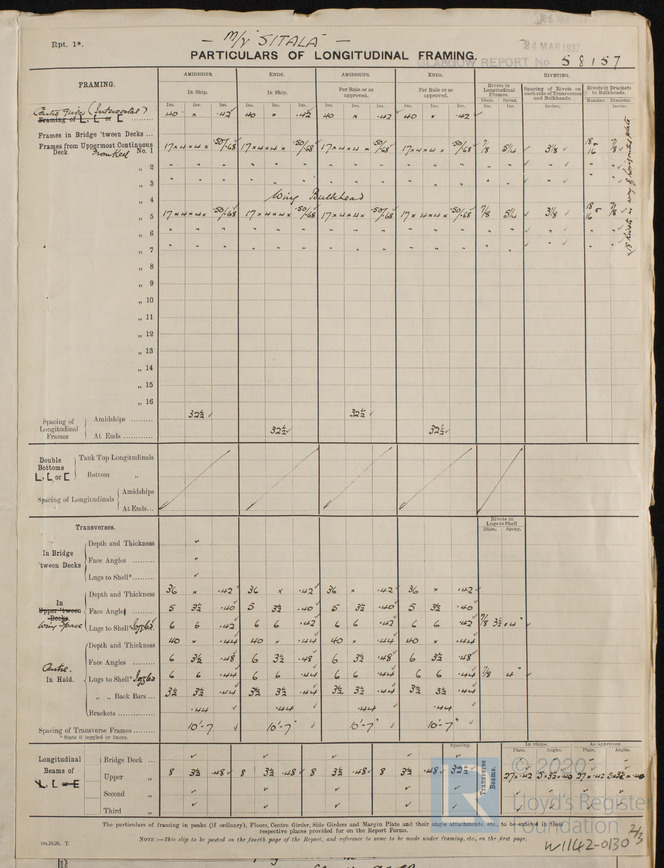 Rpt. 1*.
— M/V "SITALA" —
24 MAR 1937
PARTICULARS OF LONGITUDINAL FRAMING.
GLASGOW REPORT No 58157
FRAMING.
AMIDSHIPS. ENDS. AMIDSHIPS. ENDS. RIVETING.
In Ship. In Ship. Per Rule or as approved. Per Rule or as approved. Rivets in Longitudinal Frames. Spacing of Rivets on each side of Transverses and Bulkheads. Rivets in Brackets to Bulkheads.
Ins. Ins. Ins. Ins. Ins. Ins. Ins. Ins. Ins. Ins. Ins. Ins. Diam. Ins. Spcng. Ins. Inches. Number. Diameter. Inches.
Centre Girder (Intercostal)
Framing of L, L or C 40 × .42 40 × .42 40 × .42 40 × .42
Frames in Bridge 'tween Decks ...
Frames from Uppermost Continuous Deck No. 1 17×4×4× .50/.68 17×4×4× .50/.68 17×4×4× .50/.68 17×4×4× .50/.68 7/8 5¼ 3⅛ 18 16 7/8
„ 2 " " " " " " " "
„ 3 " " " " " " " "
„ 4 Wing Bulkhead
„ 5 17×4×4× .50/.68 17×4×4× .50/.68 17×4×4× .50/.68 17×4×4× .50/.68 7/8 5¼ 3⅛ 18 16 7/8
„ 6 " " " " " " " "
„ 7 " " " " " " " "
„ 8
„ 9
„ 10
„ 11
„ 12
„ 13
„ 14
„ 15
„ 16
Spacing of Longitudinal Frames
Amidships ......... 32½ 32½
At Ends ......... 32½ 32½
Double Bottoms L, L or C
Tank Top Longitudinals
Bottom „
Spacing of Longitudinals
Amidships
At Ends...
Transverses.
Rivets in Lugs to Shell
Diam. Spcng.
In Bridge 'tween Decks
Depth and Thickness
Face Angles .........
Lugs to Shell* .........
In Upper 'tween Decks Wing Space
Depth and Thickness 36 × .42 36 × .42 36 × .42 36 × .42
Face Angles 5 3½ .40 5 3½ .40 5 3½ .40 5 3½ .40
Lugs to Shell* Joggled 6 6 .42 6 6 .42 6 6 .42 6 6 .42 7/8
Centre. In Hold.
Depth and Thickness 40 × .44 40 × .44 40 × .44 40 × .44
Face Angles ......... 6 3½ .48 6 3½ .48 6 3½ .48 6 3½ .48
Lugs to Shell* Joggled 6 6 .44 6 6 .44 6 6 .44 6 6 .44 7/8 4"
„ „ Back Bars ... 3½ 3½ .44 3½ 3½ .44 3½ 3½ .44 3½ 3½ .44
Brackets ............ .44 .44 .44 .44
Spacing of Transverse Frames ......... 10'-7" 10'-7" 10'-7" 10'-7"
* State if joggled or liners.
Spacing. In Ships. As approved.
Plate. Angles. Plate. Angles.
Longitudinal Beams of L, L or C
Transverse Beams.
Bridge Deck ...
Upper „ 8 3½ .48 8 3½ .48 8 3½ .48 8 3½ .48 32½ 27×.42 5×3½×.40 27×.42 5×3½×.40
Second „
Third „
The particulars of framing in peaks (if ordinary), Floors, Centre Girder, Side Girders and Margin Plate and their angle attachments, etc., to be entered in their
respective places provided for on the Report Forms.
NOTE:—This slip to be pasted on the fourth page of the Report, and reference to same to be made under framing, etc., on the first page.
© 2020
Lloyd's Register
Foundation
W1142-0130 2/3